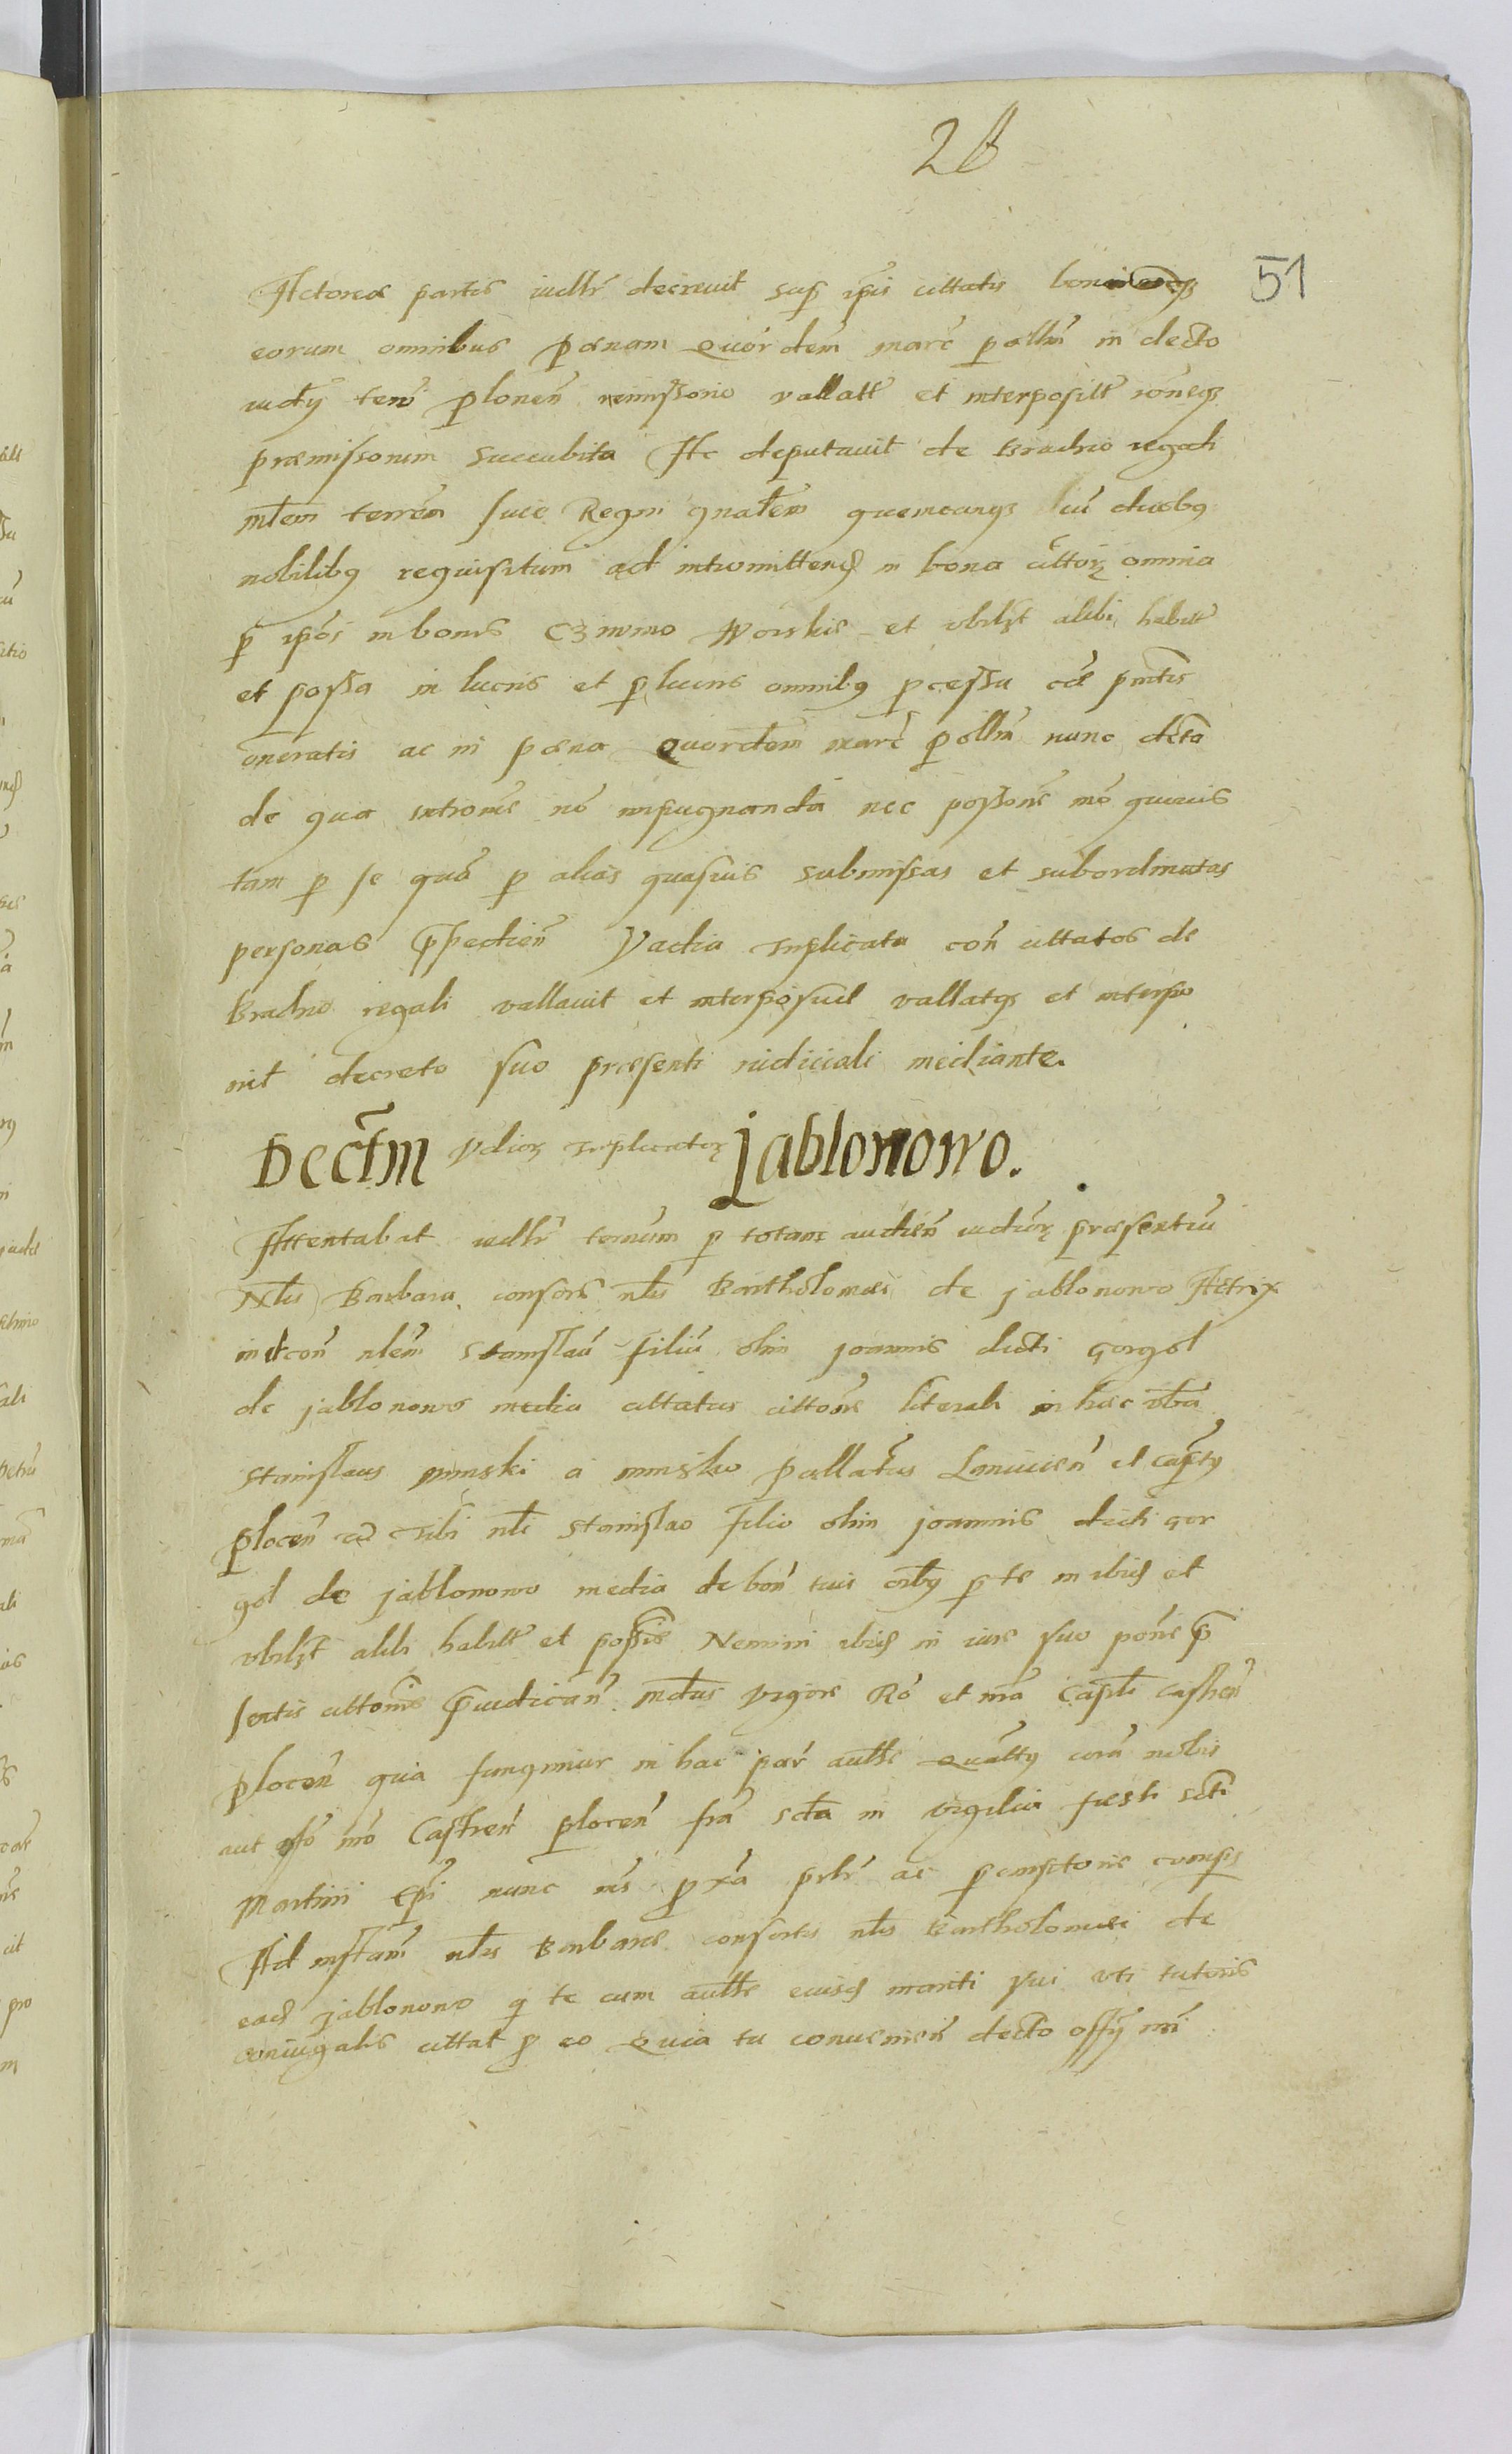 28
51
Actorea partis iudltr decrevit sup ipsis cittatis bonisq3
eorum omnibus pænam Quordem marc pollm in decto
iudty terri plonen remissorio vallatt et interposilt rōneq3
præmissorum succubita Ac deputavit de Brachio regali
mlem terrēm sive Regni gnałem quemcunq3 cū duobq
nobilibq requisitum ad intromittend in bona cittorz omnia
p ipos in bonis Czimino Worskie et vbilzt alibi habitt
et possa in lucris et plucris omnibq pcessu cæ pmtis
oneratis ac in pæna Quordem marc pollm nunc dicta
de qua intromē nō impugnanda nec possonē mō quivis
tam p se quā p alias quasvis submissas et subordinatas
personas p̄pedien Vadia triplicata con cittatos de
Brachio regali vallavit et interposuit vallatq3 et interpo
nit decreto suo præsenti iudiciali mediante.
Dectm vdiorz triplicatorz Jablonowo.
Attentabat iudltr termum p totam audien iudiorz præsentiu
Nlis Barbara consors nlis Bartholomæi de jablonowo Actrix
in et con nlem Stanislaū filiū olim joannis dicti gorgol
de jablonowo media cittatus cittone literali in hæc vba
Stanislaus minski a minsko Pallatus Lanicien et captq
plocen Tibi nli Stanislao filio olim joannis dicti gor
gol de jablonowo media de bon tuis oibq p te in ibid et
vbilzt alibi habitt et possis Nemini ibid in iure suo pons p̄
sentis cittonis p̄iudican mdtus vigore Rō et mā Captli castren
plocen qua fungimur in hac par autte Quattq corā nobis
aut offo nrō Castren plocen fria scda in vigilia festi scti
Martini Epi nunc ms pxā pltr ac pemptorie compes
Ad instām nlis Barbaræ consortis nlis Bartholomæi de
ead jablonowo q te cum autte eiusd mariti sui uti tutoris
coniugalis cittat p eo Quia tu convenien decto offy nri